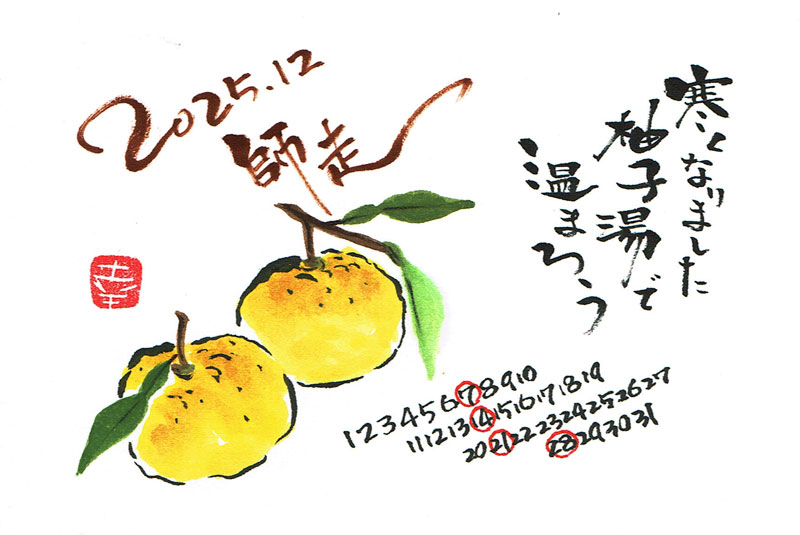 2025.12
師走
寒くなりました
柚子湯で
温まろう
幸
1 2 3 4 5 6 7 8 9 10
11 12 13 14 15 16 17 18 19
20 21 22 23 24 25 26 27
28 29 30 31